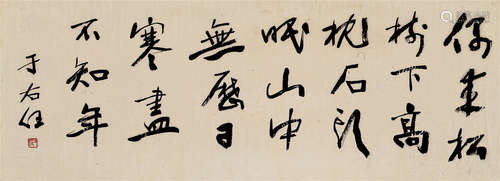 偶来松
樹下高
枕石头
眠山中
無歷日
寒盡
不知年
于右任